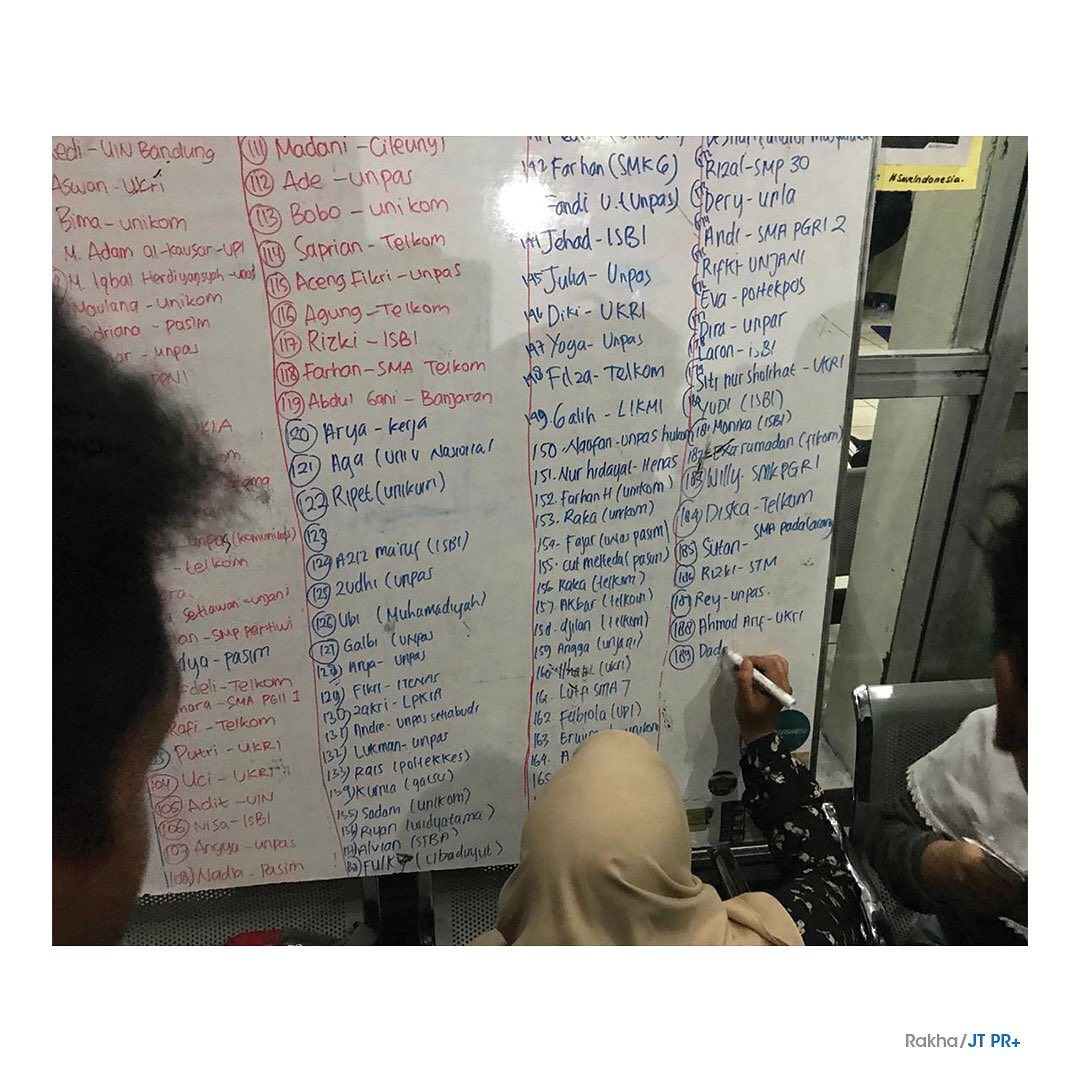 edi - UIN Bandung
Aswan - UKRI
Bima - unikom
M. Adam al-kausar - UPI
M. Iqbal Herdiyansyah
Maulang - unikom
driano - pasim
unpas
unpas (komunikasi)
- telkom
setiawan - unjani
an - SMP pertiwi
dya - pasim
fdeli - Telkom
hara - SMA PGII 1
Rafi - Telkom
Putri - UKRI
104 Uci - UKRI
105 Adit - UIN
106 Nisa - ISBI
107 Angga - unpas
108 Nadia - Pasim
111 Madani - Cileunyi
112 Ade - unpas
113 Bobo - unikom
114 Saprian - Telkom
115 Aceng Fikri - unpas
116 Agung - Telkom
117 Rizki - ISBI
118 Farhan - SMA Telkom
119 Abdul Gani - Banjaran
120 Arya - kerja
121 Aga (Univ Nasional
122 Ripet (unikom)
123
124 Aziz ma'ruf (ISBI)
125 Zudhi (unpas
126 Ubi (Muhamadiyah)
127 Galbi (unpas
128 Arya - unpas
129 Fikri - ITENAS
130 Zakri - LPKIA
131 Andre - unpas setiabudi
132 Lukman - unpas
133 Rais (poltekkes)
134 Kurnia (gatsu)
135 Sadam (unikom)
136 Riyan (widyatama)
137 Alvian (STBA)
(Cibaduyut)
142 Farhan (SMK 6)
Fandi U. (Unpas)
144 Jehad - ISBI
145 Julia - Unpas
146 Diki - UKRI
147 Yoga - Unpas
148 Filza - Telkom
149. Galih - LIKMI
150. Naufan - unpas hukum
151. Nur hidayat - Itenas
152. Farhan H (unikom)
153. Raka (unikom)
154. Fajar (unas pasim)
155. cut (pasim)
156. Raka (telkom)
157. Akbar (telkom)
158. djilan (telkom)
159 Angga (unjani)
160. (ukri)
161. Lutfi SMA 7
162 Febiola (UPI)
163 unikom
164. A
165
Rizal - SMP 30
Dery - unla
Andi - SMA PGRI 2
Rifki - UNJANI
Eva - poltekpos
Dira - unpar
Laron - ISBI
Siti nur sholihat - UKRI
YUDI (ISBI)
181 Monika (ISBI)
182 ramadan (telkom)
183 Willy - SMK PGRI
184 Diska - Telkom
185 Sutan - SMA padalarang
186 Rizki - STM
187 Rey - unpas.
188 Ahmad Arif - UKRI
189 Dad
#SaveIndonesia.
Rakha/JT PR+